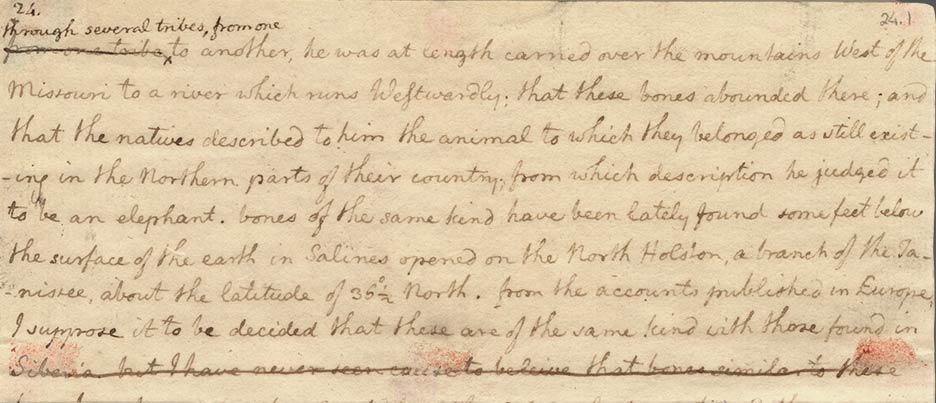 24.
through several tribes, from one
24.
from one tribe to another, he was at length carried over the mountains West of the
Missouri to a river which runs Westwardly; that these bones abounded there; and
that the natives described to him the animal to which they belonged as still exist-
-ing in the Northern parts of their country; from which description he judged it
to be an elephant. bones of the same kind have been lately found some feet below
the surface of the earth in Salines opened on the North Holston, a branch of the Ta-
-nissee, about the latitude of 36°½ North. from the accounts published in Europe,
I suppose it to be decided that these are of the same kind with those found in
Siberia. but I have never seen cause to beleive that bones similar to these